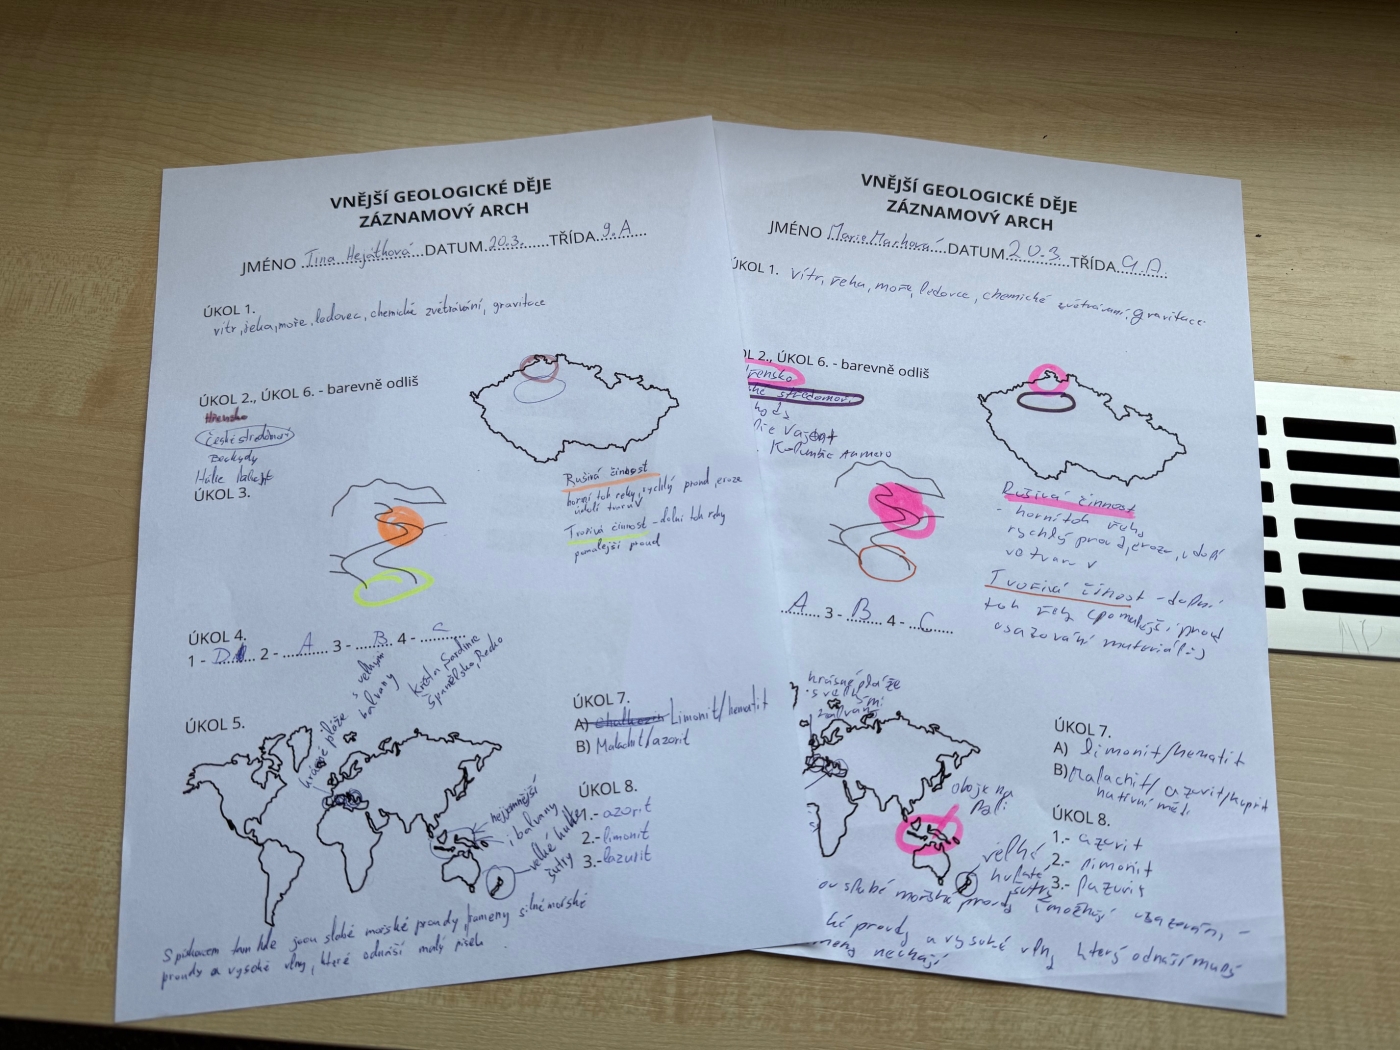 VNĚJŠÍ GEOLOGICKÉ DĚJE
ZÁZNAMOVÝ ARCH
JMÉNO Tina Hejátková DATUM 20.3. TŘÍDA 9.A
ÚKOL 1.
vítr, řeka, moře, ledovec, chemické zvětrávání, gravitace
ÚKOL 2., ÚKOL 6. - barevně odliš
Hřensko
České středohoří
Beskydy
ÚKOL 3.
Rušivá činnost
horní tok řeky, rychlý proud, eroze
údolí tvaru V
Tvořivá činnost - dolní tok řeky
pomalejší proud
ÚKOL 4.
1 - D 2 - A 3 - B 4 - C
ÚKOL 5.
krásné pláže
s velkými
balvany
Kréta, Sardinie
Španělsko, Řecko
nejjemnější
balvany
velké
šutry
S pískem tam kde jsou slabé mořské proudy, kameny silné mořské
proudy a vysoké vlny, které odnáší malý písek.
ÚKOL 7.
A) Limonit/hematit
B) Malachit/azorit
ÚKOL 8.
1.- azorit
2.- limonit
3.- lazurit
VNĚJŠÍ GEOLOGICKÉ DĚJE
ZÁZNAMOVÝ ARCH
JMÉNO Marie Marková DATUM 20.3 TŘÍDA 9.A
ÚKOL 1. vítr, řeka, moře, ledovce, chemické zvětrávání, gravitace
OL 2., ÚKOL 6. - barevně odliš
řensko
Rušivá činnost
- horní tok řeky
rychlý proud, eroze, údolí
ve tvaru V
Tvořivá činnost - dolní
tok řeky (pomalejší proud
usazování materiálů)
A 3 - B 4 - C
krásné pláže
s velkými
balvany
obojí na
Bali
velké
hulaté
šutry
ou slabé mořské proudy umožňují usazování, -
ké proudy a vysoké vlny který odnáší malý
meny nechají
ÚKOL 7.
A) limonit/hematit
B) Malachit/azurit/kuprit
nativní měď
ÚKOL 8.
1.- azurit
2.- limonit
3.- lazurit